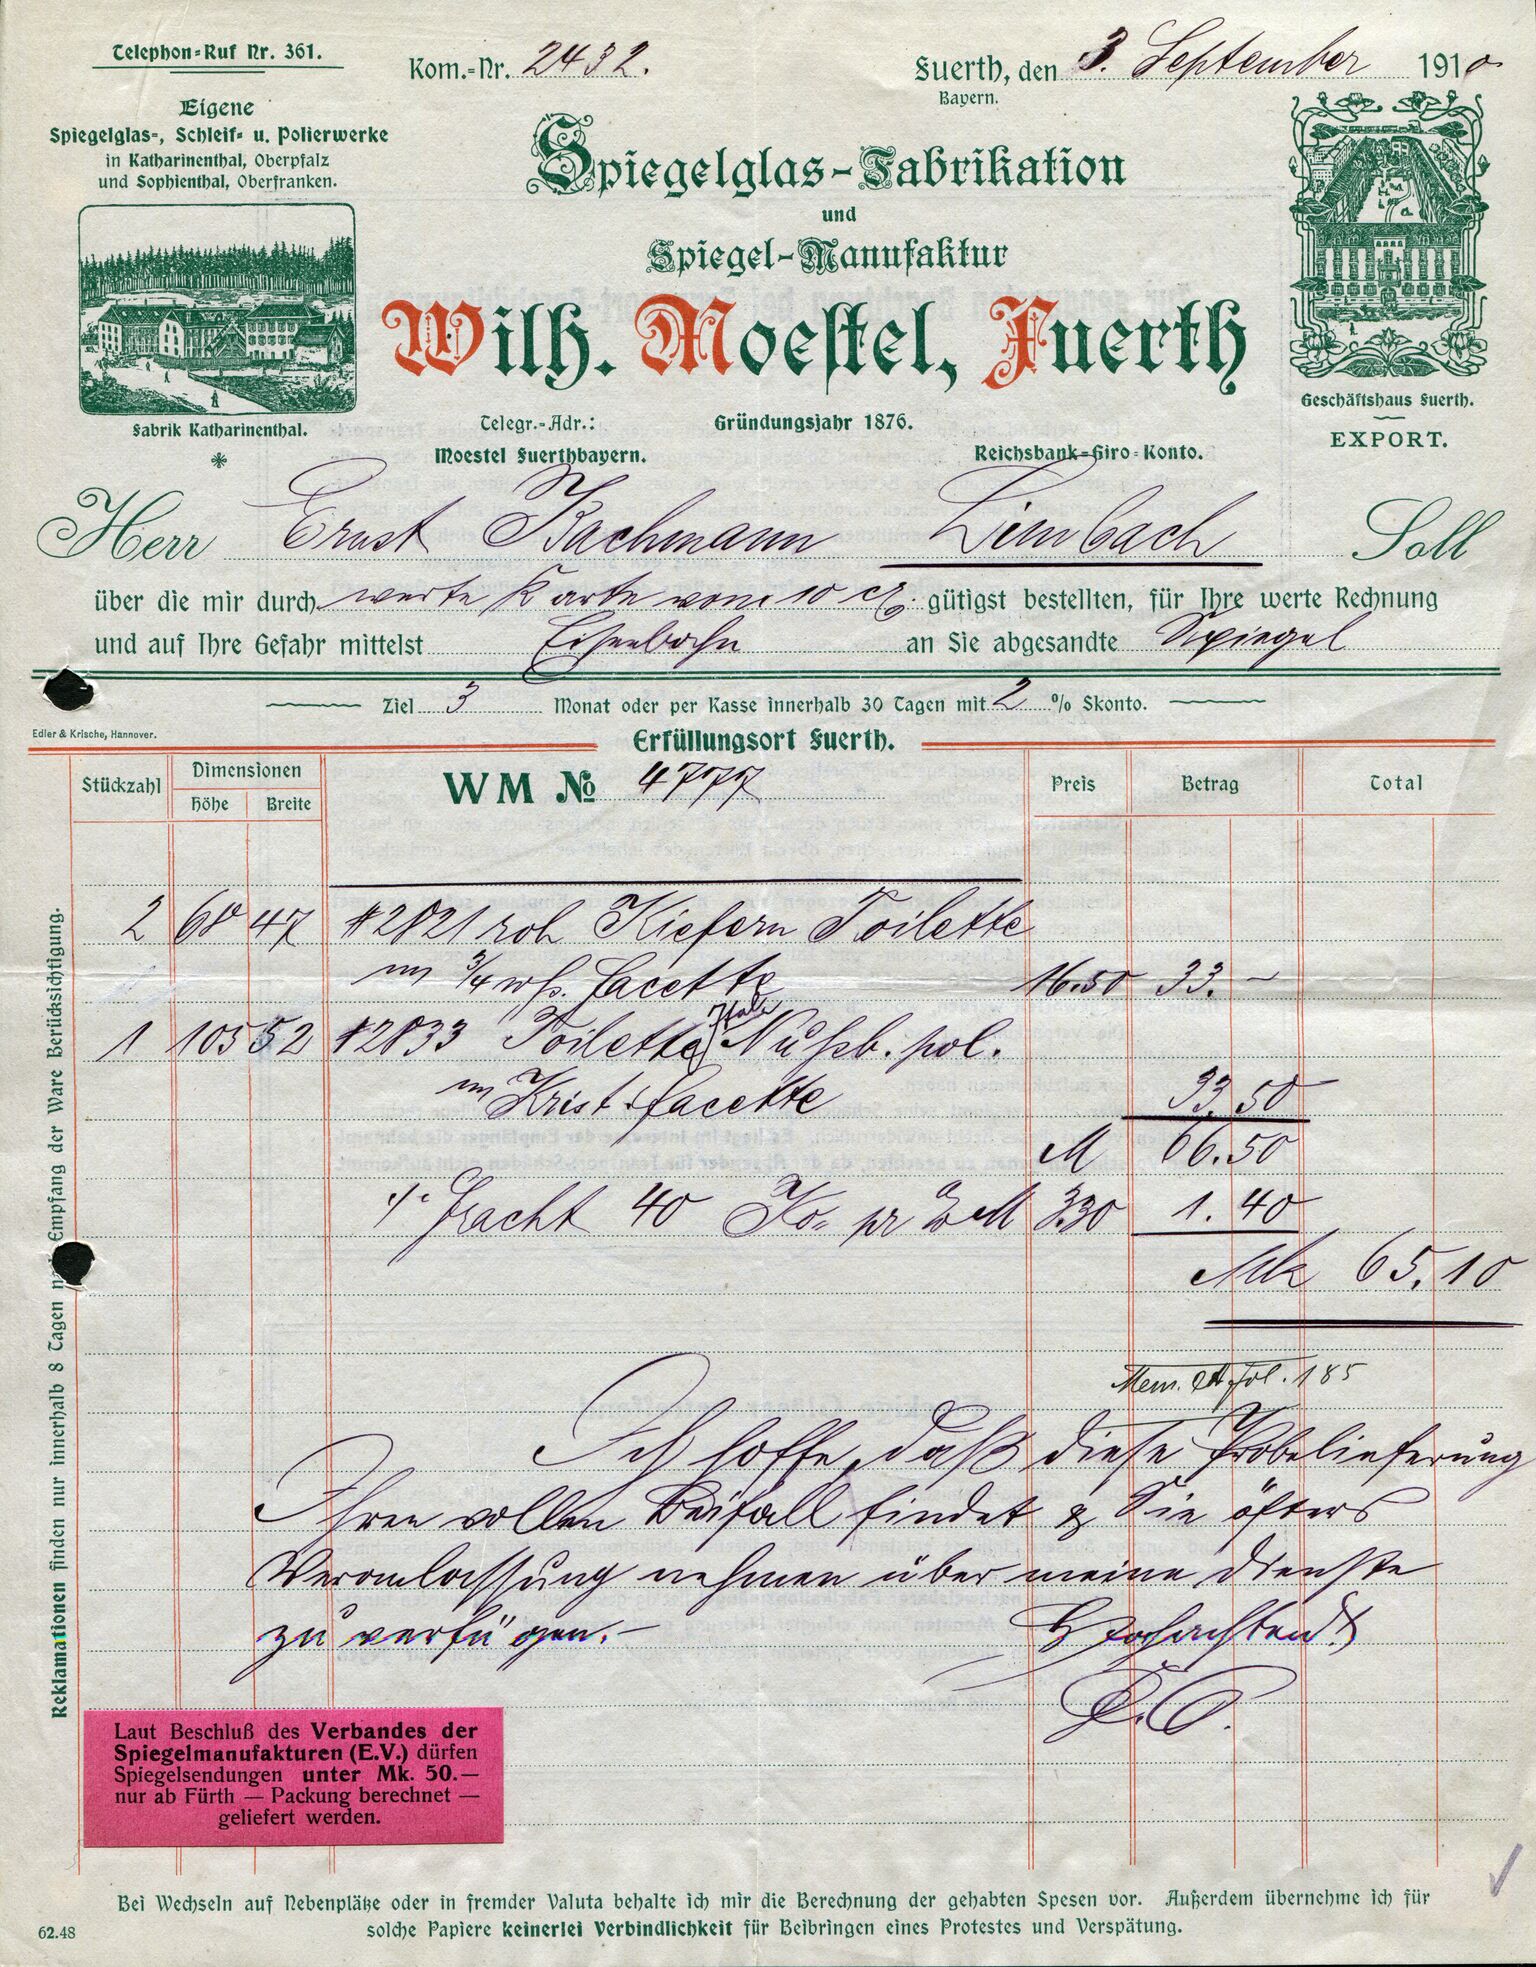 Telephon-Ruf Nr. 361.
Kom.-Nr. 2432.
Fuerth, den 3. September 1910
Bayern.
Eigene
Spiegelglas-, Schleif- u. Polierwerke
in Katharinenthal, Oberpfalz
und Sophienthal, Oberfranken.
Spiegelglas-Fabrikation
und
Spiegel-Manufaktur
Wilh. Moestel, Fuerth
Fabrik Katharinenthal.
Telegr.-Adr.:
Moestel Fuerthbayern.
Gründungsjahr 1876.
Reichsbank-Giro-Konto.
Geschäftshaus Fuerth.
EXPORT.
Herr Ernst Bachmann Limbach Soll
über die mir durch werte Karte vom 10 gütigst bestellten, für Ihre werte Rechnung
und auf Ihre Gefahr mittelst Eisenbahn an Sie abgesandte Spiegel
Ziel 3 Monat oder per Kasse innerhalb 30 Tagen mit 2 % Skonto.
Edler & Krische, Hannover.
Erfüllungsort Fuerth.
Stückzahl Dimensionen WM No 4777 Preis Betrag Total
Höhe Breite
2 68 47 #2821 roh Kiefern Toilette
m 3/4 wß. facette 16.50 33.–
1 105 52 #2833 Toilette Nußb. pol.
m Krist. facette 33.50
M 66.50
Fracht 40 Ko pr M 3.30 1.40
Mk 65.10
Mem. fol. 185
Ich hoffe, daß diese Probelieferung
Ihren vollen Beifall findet & Sie öfters
Veranlassung nehmen über meine Dienste
zu verfügen.–
Hochachtend
Reklamationen finden nur innerhalb 8 Tagen nach Empfang der Ware Berücksichtigung.
Laut Beschluß des Verbandes der
Spiegelmanufakturen (E.V.) dürfen
Spiegelsendungen unter Mk. 50.—
nur ab Fürth — Packung berechnet —
geliefert werden.
Bei Wechseln auf Nebenplätze oder in fremder Valuta behalte ich mir die Berechnung der gehabten Spesen vor. Außerdem übernehme ich für
solche Papiere keinerlei Verbindlichkeit für Beibringen eines Protestes und Verspätung.
62.48